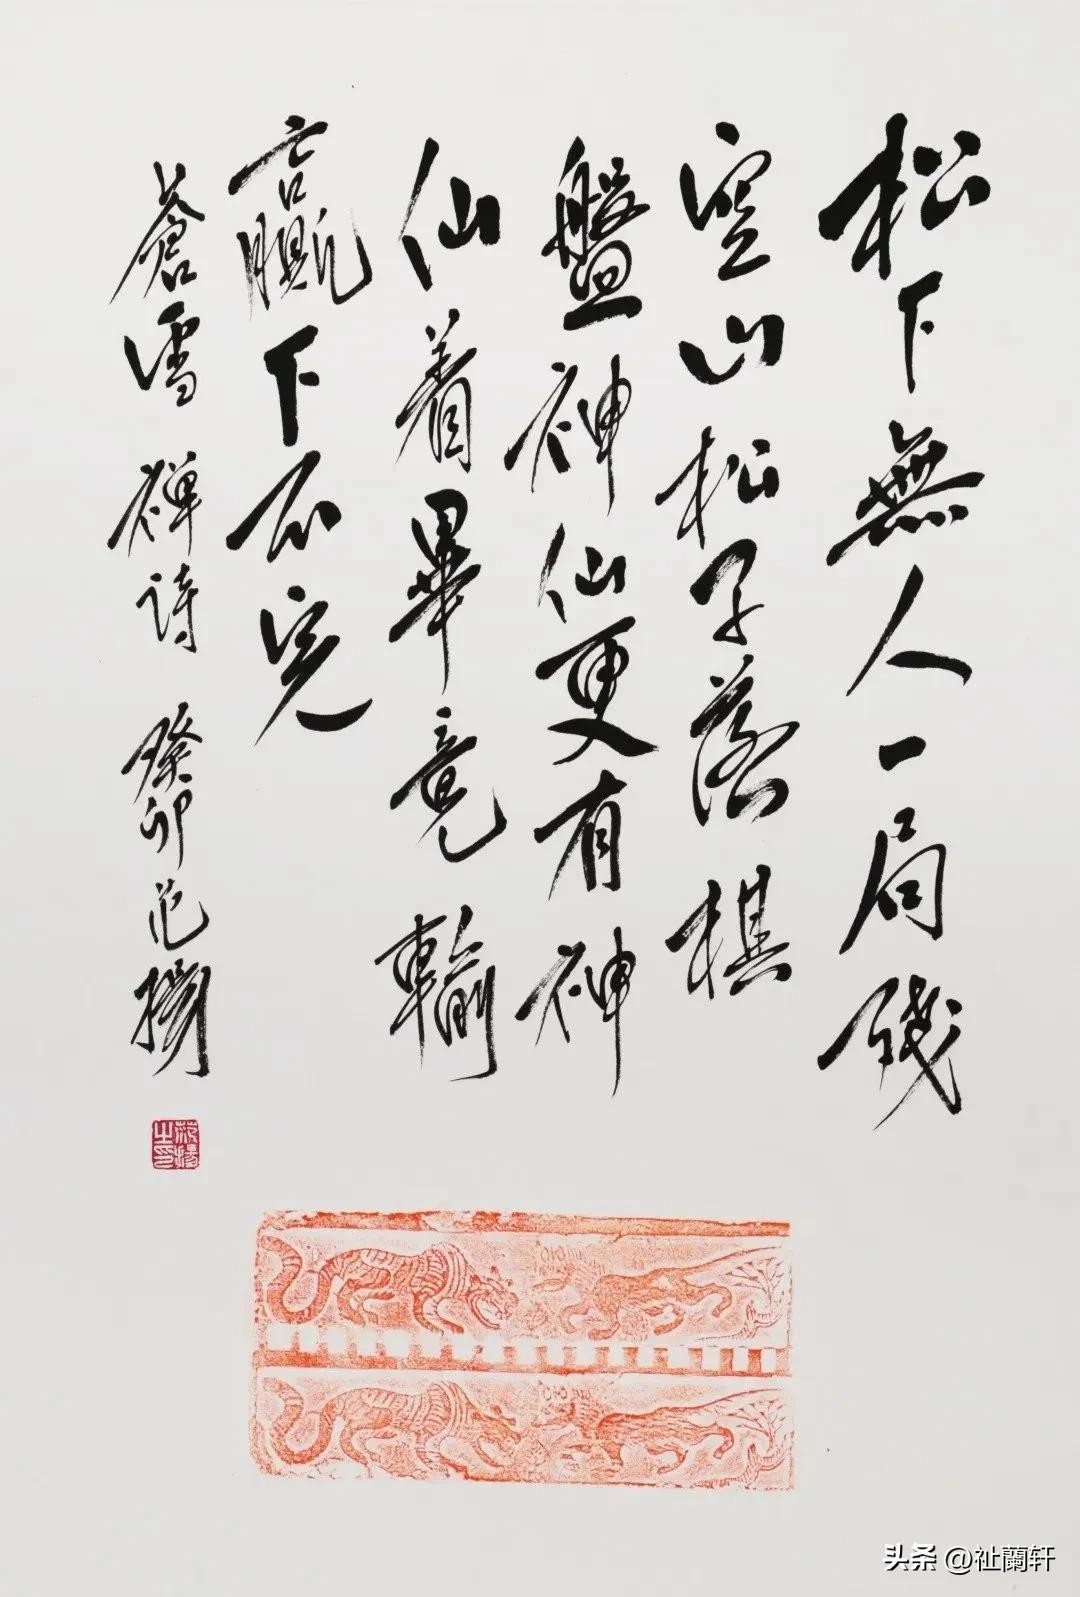 松下無人一局殘
空山松子落棋
盤神仙更有神
仙着畢竟輸
贏下不完
蒼雪禪詩 癸卯范揚
范揚之印
头条 @祉蘭轩